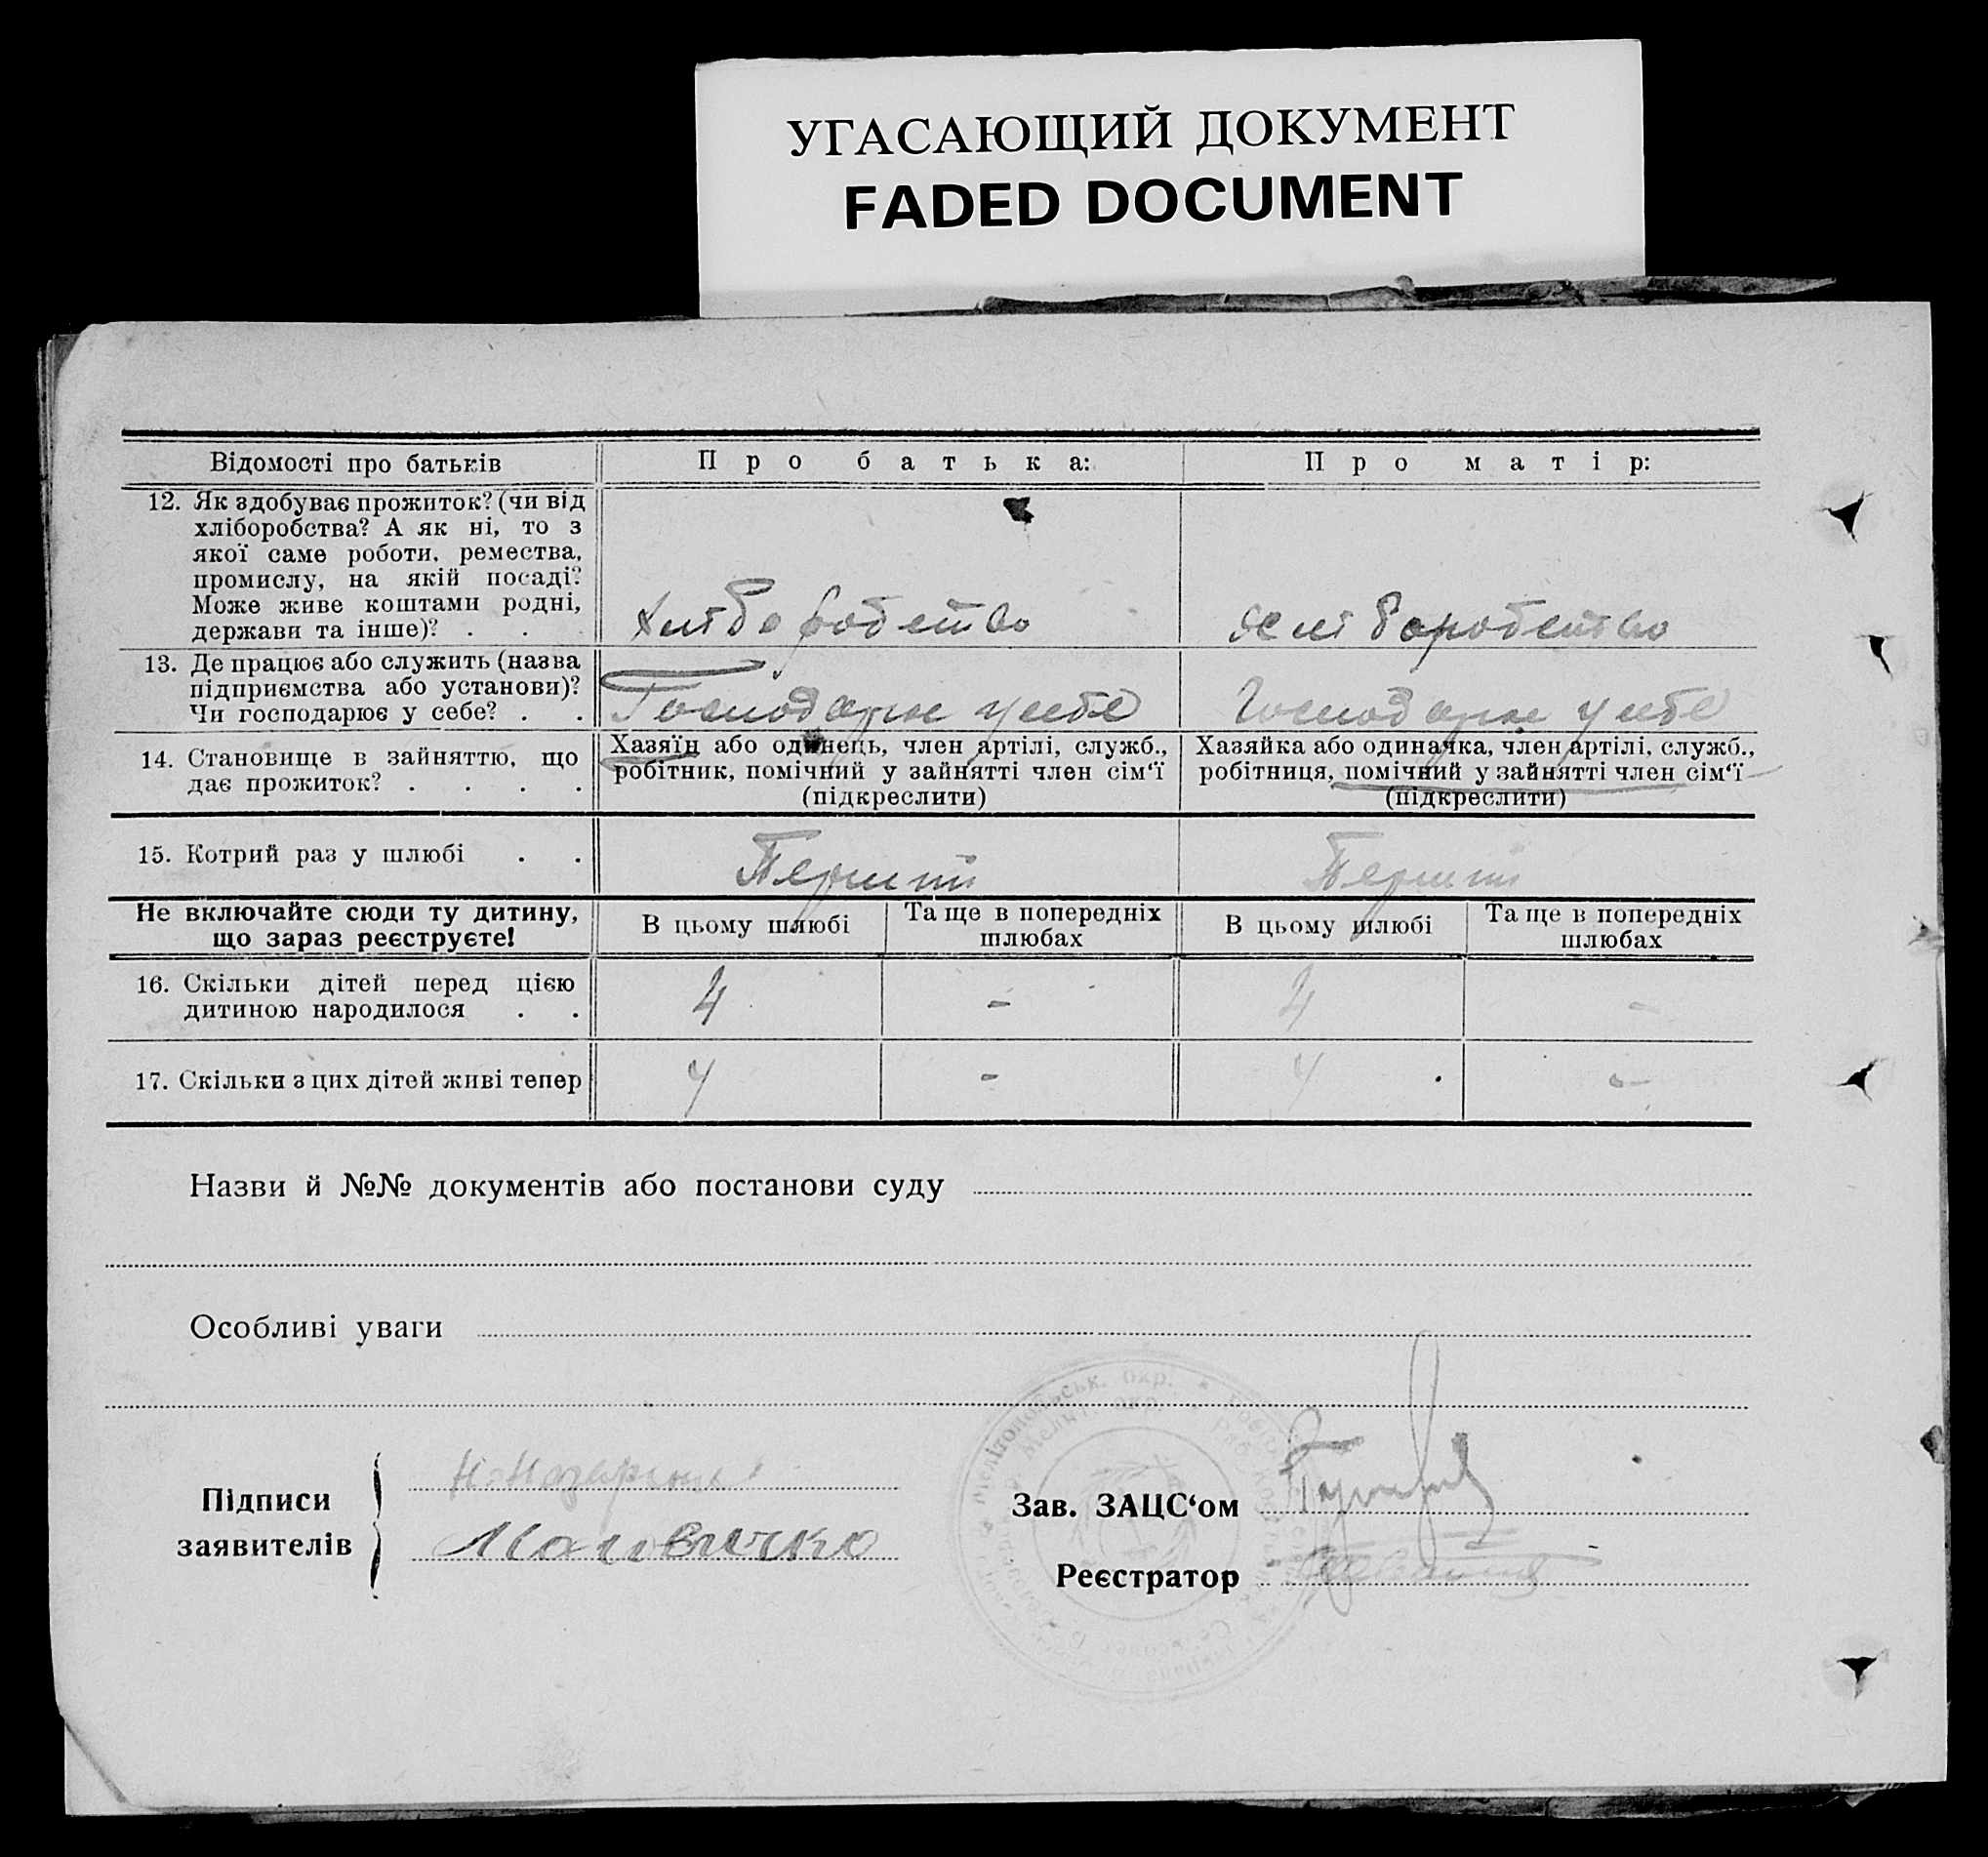 УГАСАЮЩИЙ ДОКУМЕНТ
FADED DOCUMENT
Відомості про батьків
Про батька:
Про матір:
12. Як здобуває прожиток? (чи від
хліборобства? А як ні, то з
якої саме роботи, ремества,
промислу, на якій посаді?
Може живе коштами родні,
держави та інше)? . .
Хліборобство
Хліборобство
13. Де працює або служить (назва
підприємства або установи)?
Чи господарює у себе? . .
Господарює у себе
Господарює у себе
14. Становище в зайняттю, що
дає прожиток? . . . .
Хазяїн або одинець, член артілі, служб.,
робітник, помічний у зайнятті член сім‘ї
(підкреслити)
Хазяйка або одиначка, член артілі, служб.,
робітниця, помічний у зайнятті член сім‘ї
(підкреслити)
15. Котрий раз у шлюбі . .
Перший
Перший
Не включайте сюди ту дитину,
що зараз реєструєте!
В цьому шлюбі
Та ще в попередніх
шлюбах
В цьому шлюбі
Та ще в попередніх
шлюбах
16. Скільки дітей перед цією
дитиною народилося . .
4 - 4 -
17. Скільки з цих дітей живі тепер
4 - 4 -
Назви й №№ документів або постанови суду
Особливі уваги
Підписи
заявителів
Зав. ЗАЦС‘ом
Реєстратор